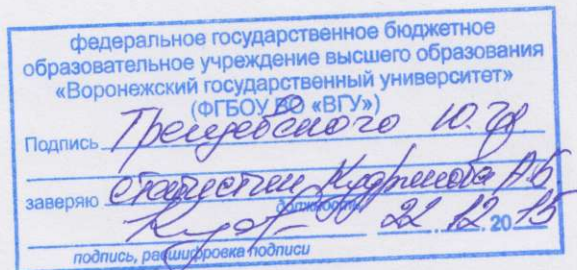 федеральное государственное бюджетное
образовательное учреждение высшего образования
«Воронежский государственный университет»
(ФГБОУ ВО «ВГУ»)
Подпись Ю.
заверяю А.Б.
должность
22 12 2015
подпись, расшифровка подписи